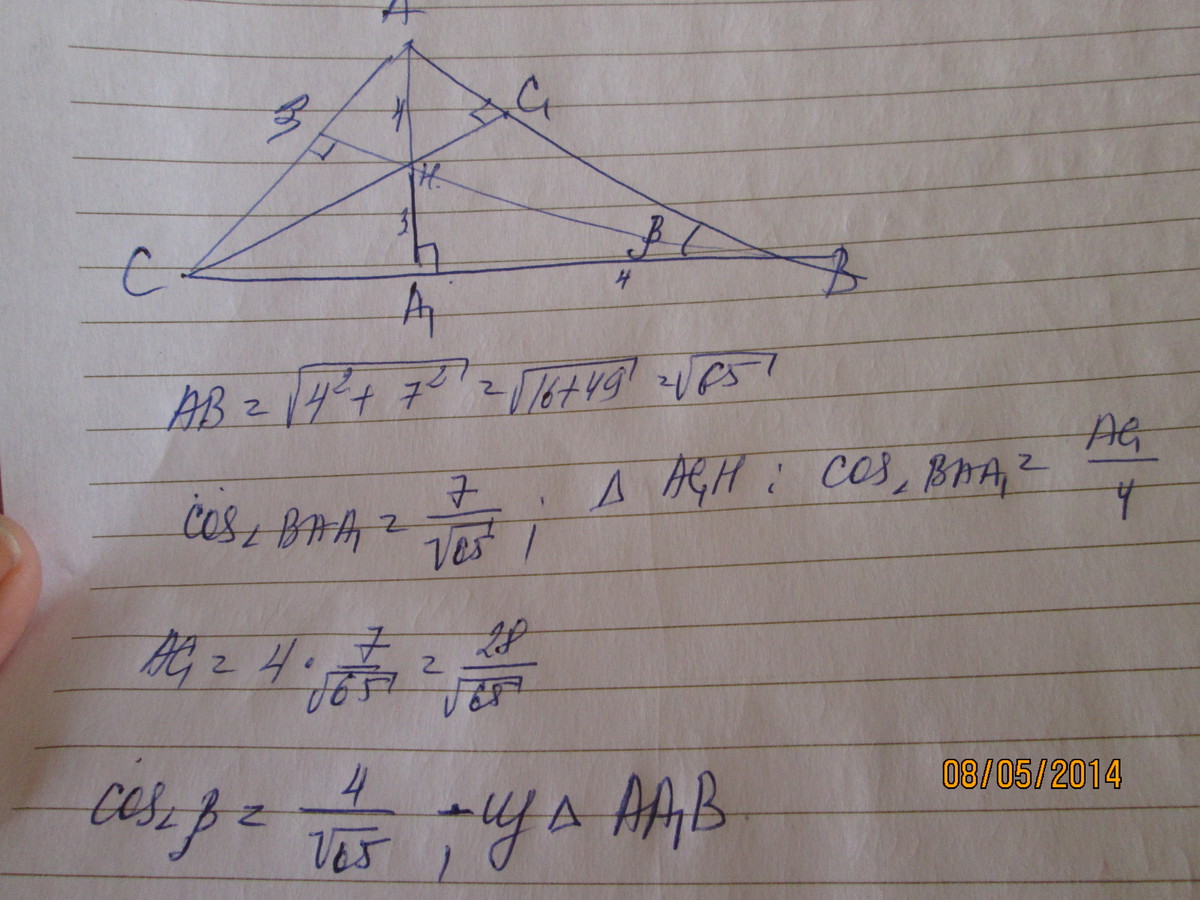 A
З
4
C₁
H.
3
β
C
A₁
4
B
AB = √4² + 7² = √16+49 = √65
cos∠BAA₁ = 7/√65 ; Δ AC₁H : cos∠BAA₁ = AC₁/4
AC₁ = 4 · 7/√65 = 28/√65
cos∠β = 4/√65 , - из Δ AA₁B
08/05/2014